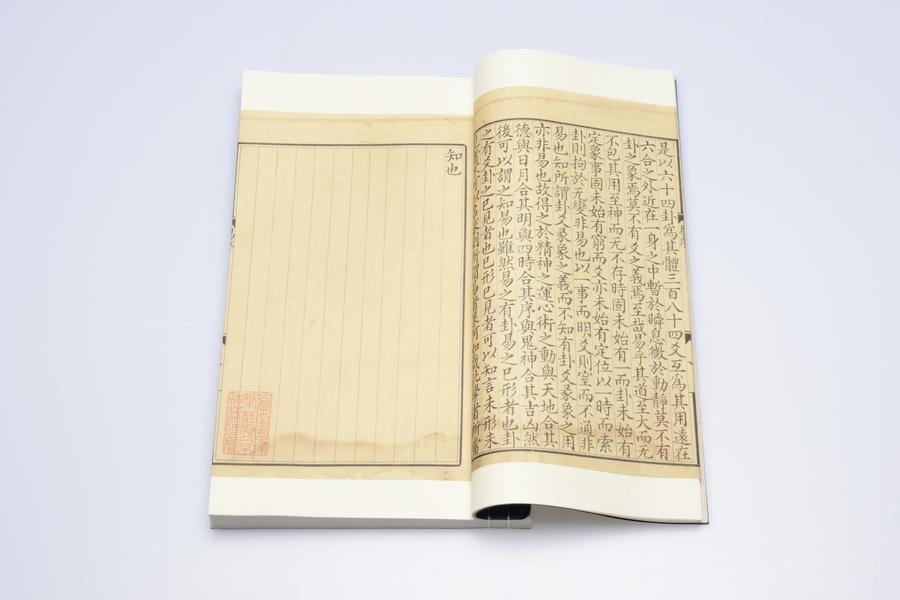 是以六十四卦爲其體三百八十四爻互爲其用遠在
六合之外近在一身之中暫於瞬息微於動靜莫不有
卦之象焉莫不有爻之義焉至哉易乎其道至大而无
不包其用至神而无不存時固未始有一而卦未始有
定象事固未始有窮而爻亦未始有定位以一時而索
卦則拘於无變非易也以一事而明爻則窒而不通非
易也知所謂卦爻彖象之義而不知有卦爻彖象之用
亦非易也故得之於精神之運心術之動與天地合其
德與日月合其明與四時合其序與鬼神合其吉凶然
後可以謂之知易也雖然易之有卦易之已形者也卦
之有爻卦之已見者也已形已見者可以知言未形未
知也